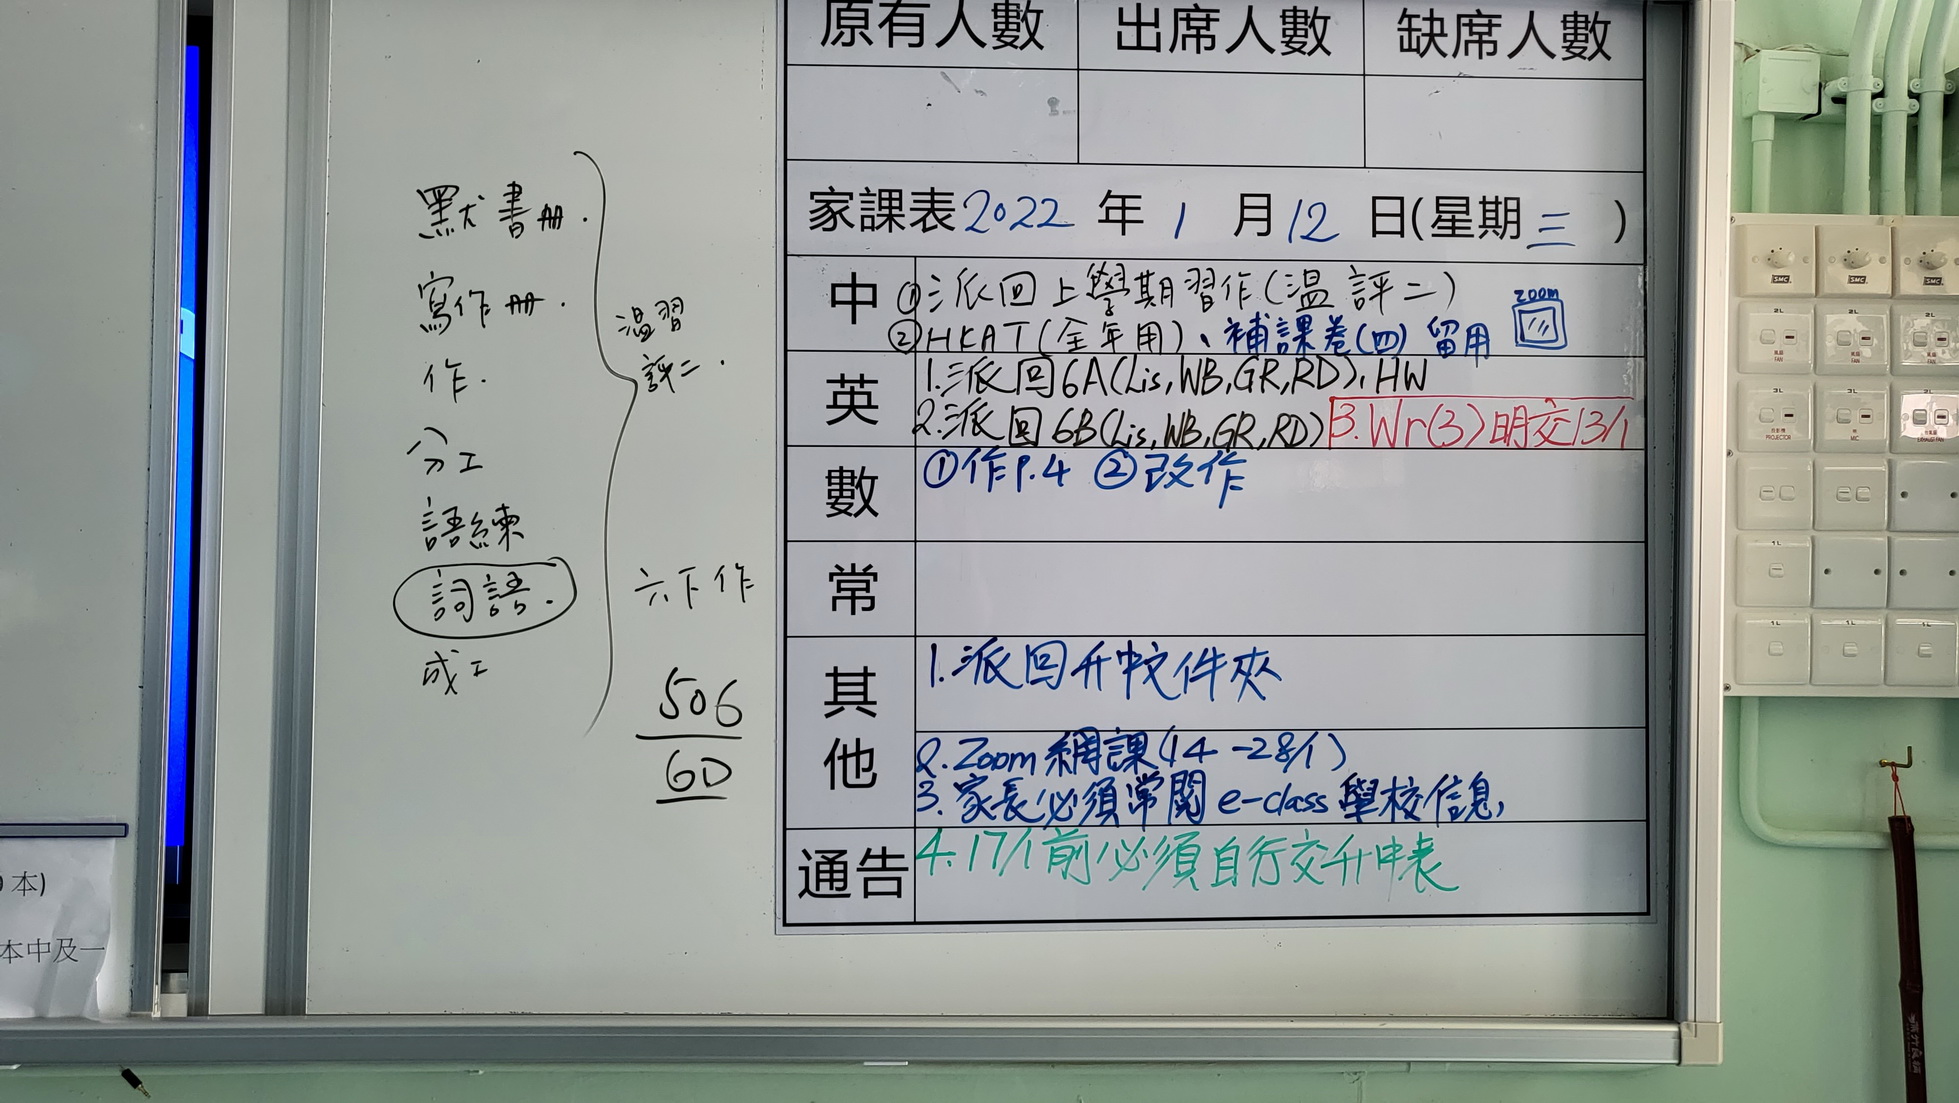 默書冊.
寫作冊.
作.
分工
語練
詞語.
成工
溫習
評二.
六下作
506
60
原有人數 出席人數 缺席人數
家課表2022年1月12日(星期三)
中 ①派回上學期習作(溫評二)
②HKAT(全年用)、補課卷(四)留用
zoom
英 1.派回6A(Lis,WB,GR,RD),HW
2.派回6B(Lis,WB,GR,RD) 3.Wr(3)明交13/1
數 ①作P.4 ②改作
常
其他 1.派回升中文件夾
2.Zoom網課(14-28/1)
3.家長必須常閱e-class學校信息,
通告 4.17/1前必須自行交升中表
本)
本中及一
SMC SMC SMC
2L 2L 2L
FAN FAN FAN
3L 3L 3L
PROJECTOR MIC EXHAUST FAN
1L 1L
1L 1L 1L